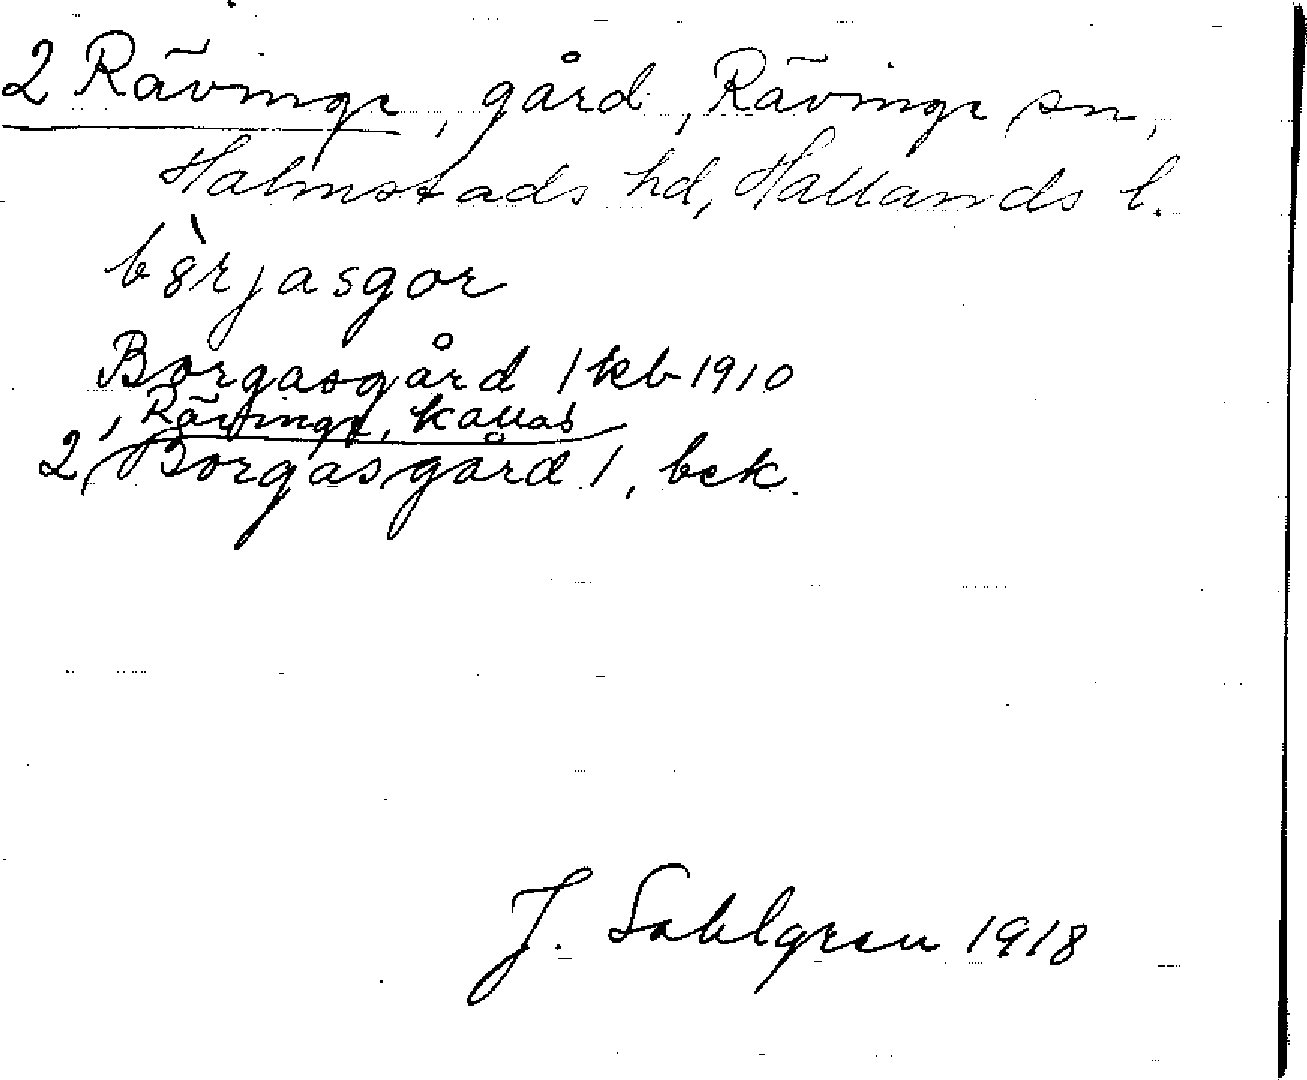 2 Rävinge, gård, Rävinge sn,
Halmstads hd, Hallands l.
bö̀rjasgor
Borgasgård 1 kb 1910
1, Rävinge, kallas
2, Borgasgård 1, bek.
J. Sahlgren 1918